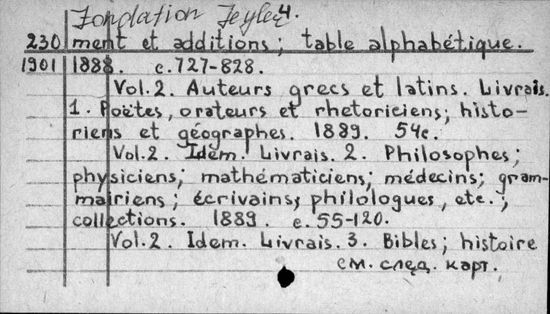 Fondation Teyler 4.
230 ment et additions; table alphabétique.
1901 1888. c. 727-828.
Vol.2. Auteurs grecs et latins. Livrais.
1. Poëtes, orateurs et rhetoriciens; histo-
riens et géographes. 1889. 54c.
Vol.2. Idem. Livrais. 2. Philosophes;
physiciens; mathématiciens; médecins; gram-
mairiens; écrivains, philologues, etc.;
collections. 1889. c. 55-120.
Vol.2. Idem. Livrais. 3. Bibles; histoire
см. след. карт.